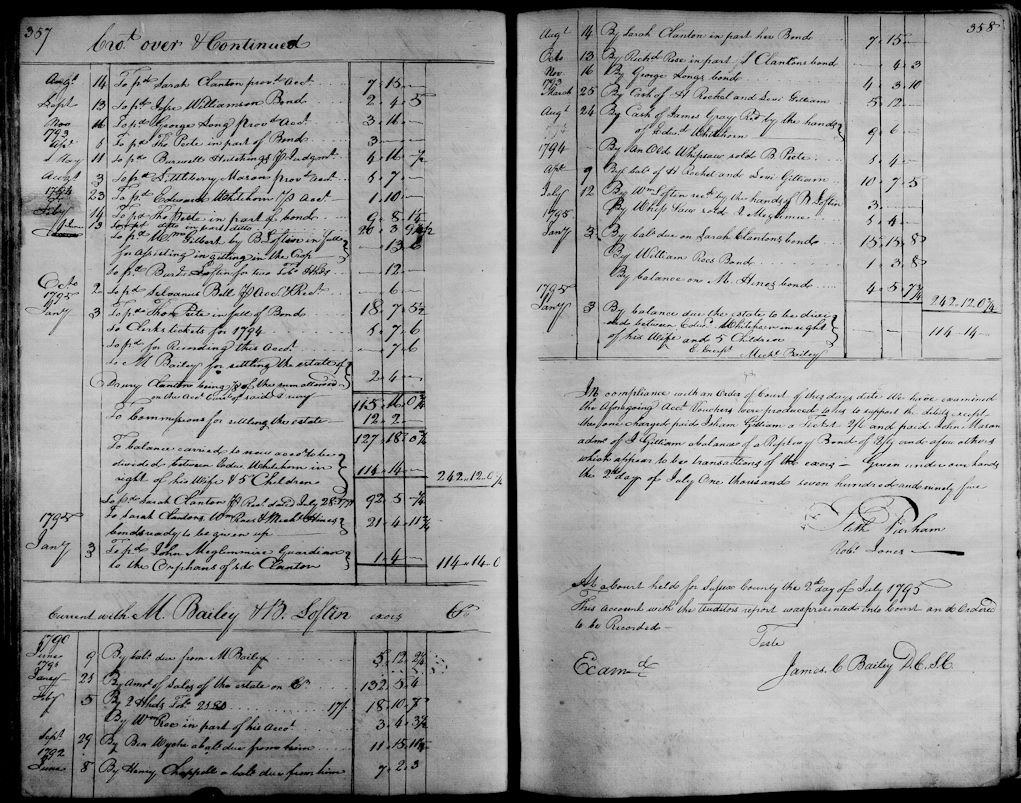 357
Bro.t over & Continued
Augt 14 To pd Sarah Clanton prov.d Acct. 7 " 15 " —
Sept 13 To pd Jesse Williamson Bond 2 " 4 " 5
Nov 16 To pd George Long prov.d Acct. 3 " 16 " —
1793
5 To pd Tho Peete in part of Bond 3 " —
May 11 To pd Burwell Hutchings Judgmt. 4 " 16 "
Augt 3 To pd Littleberry Mason prov.d Acct. 5 " 7 " —
1794 23 To pd Edward Whitehorn Acct. 1 " 10 " —
Feby 14 To pd Tho Peete in part of bond 9 " 8
13 To pd ditto in part ditto 20 " 3
To pd Wm Gilbert by B. Loftin in full
for assisting in gitting in the Crop — " 13 " 6
To pd Loftin for two Tob.o Hhds — " 12 " —
Octo 2 To pd Silvanus Bell Acct. & Rect. — " 6 " —
1795
Jany 3 To pd Thos Peete in full of Bond 18 " 7 " 5½
To Clerks tickets for 1794 5 " 7 " 6
To pd for Recording this Acct. — " 7 " 6
To M Bailey for settling the estate of
Drury Clanton being of the sum allowed
in the Acct. Curt. of said Drury 2 " 4 " —
115 " 16 " 0¾
To Commissions for settling the estate 12 " 2 " —
127 " 18 " 0¾
To balance carried to new acct. to be
divided between Edwd Whitehorn in
right of his Wife & 5 Children 114 " 14 " — 242 " 12 " 0¾
To pd Sarah Clanton Rect. dated July 28 92 " 5 "
1795 To Sarah Clantons, Wm Roes & Michl Hines
bonds ready to be given up 21 " 4 " 11¾
Jany 3 To pd John Meglemrie Guardian
to the Orphans of sd Clanton 1 " 4 " — 114 " 14 " 0
Current with M. Bailey & B. Loftin exors Cr
1790
June 9 By balc. due from M Bailey 5 " 12 " 2¼
1791
Jany 25 By Amot of Sales of the estate on Cr 132 " 5 " 4
Feby 5 By 2 Hhds Tob.o 2180 17/ 18 " 10 " 7
By Wm Roe in part of his Acct. 3 " 4 " 3½
Sept 29 By Ben Wyche a balc. due from him 11 " 15
1792
June 8 By Henry Chappell a balc. due from him 7 " 2 " 3
358
Augt 14 By Sarah Clanton in part her Bond 7 " 15 " —
Octo 13 By Richd Rose in part of S Clantons bond — " 4 " 3
Nov 16 By George Longs bond 4 " 3 " 10
1793
March 25 By Cash of H Rochel and Levi Gilliam 5 " 12 " —
Augt 24 By Cash of James Gray Recd by the hands
of Edwd Whitehorn 9 " 6 " —
1794 — By an Old Whipsaw sold B. Peete 5 " 4 " —
Apl 9 By balc. of H Rochel and Levi Gilliam 10 " 7 " 5
July 12 By Wm Loftin recd by the hands of B Loftin 3 " —
1795 By Whip Saw sold J. Meglemrie 5 " 4 " —
Jany 3 By balc. due on Sarah Clantons bond 15 " 18 " 8
By William Roes Bond 1 " 3 " 8
By balance on M. Hines bond 4 " 5 " 7¾
242 " 12 " 0¾
1795
Jany 3 By balance due the estate to be divi-
ded between Edwd Whitehorn in right
of his Wife and 5 Children 114 " 14 —
E. Except. Michl Bailey
In compliance with an Order of Court of this days date We have examined
the aforegoing Acct. Vouchers were produced to us to support the debits except
the one charged paid Isham Gilliam a Ticket 2/6 and paid John Mason
admr of J Gilliam a balance of a Replevy Bond of and a few others
which appear to be transactions of the exors — Given under our hands
the 2nd day of July One thousand seven hundred and ninety five
Peth Parham
Robt. Jones
At a Court held for Sussex County the 2nd day of July 1795
This Account with the Auditors report was presented into Court and Ordered
to be Recorded —
Teste
Examd James C Bailey D.C.S.C